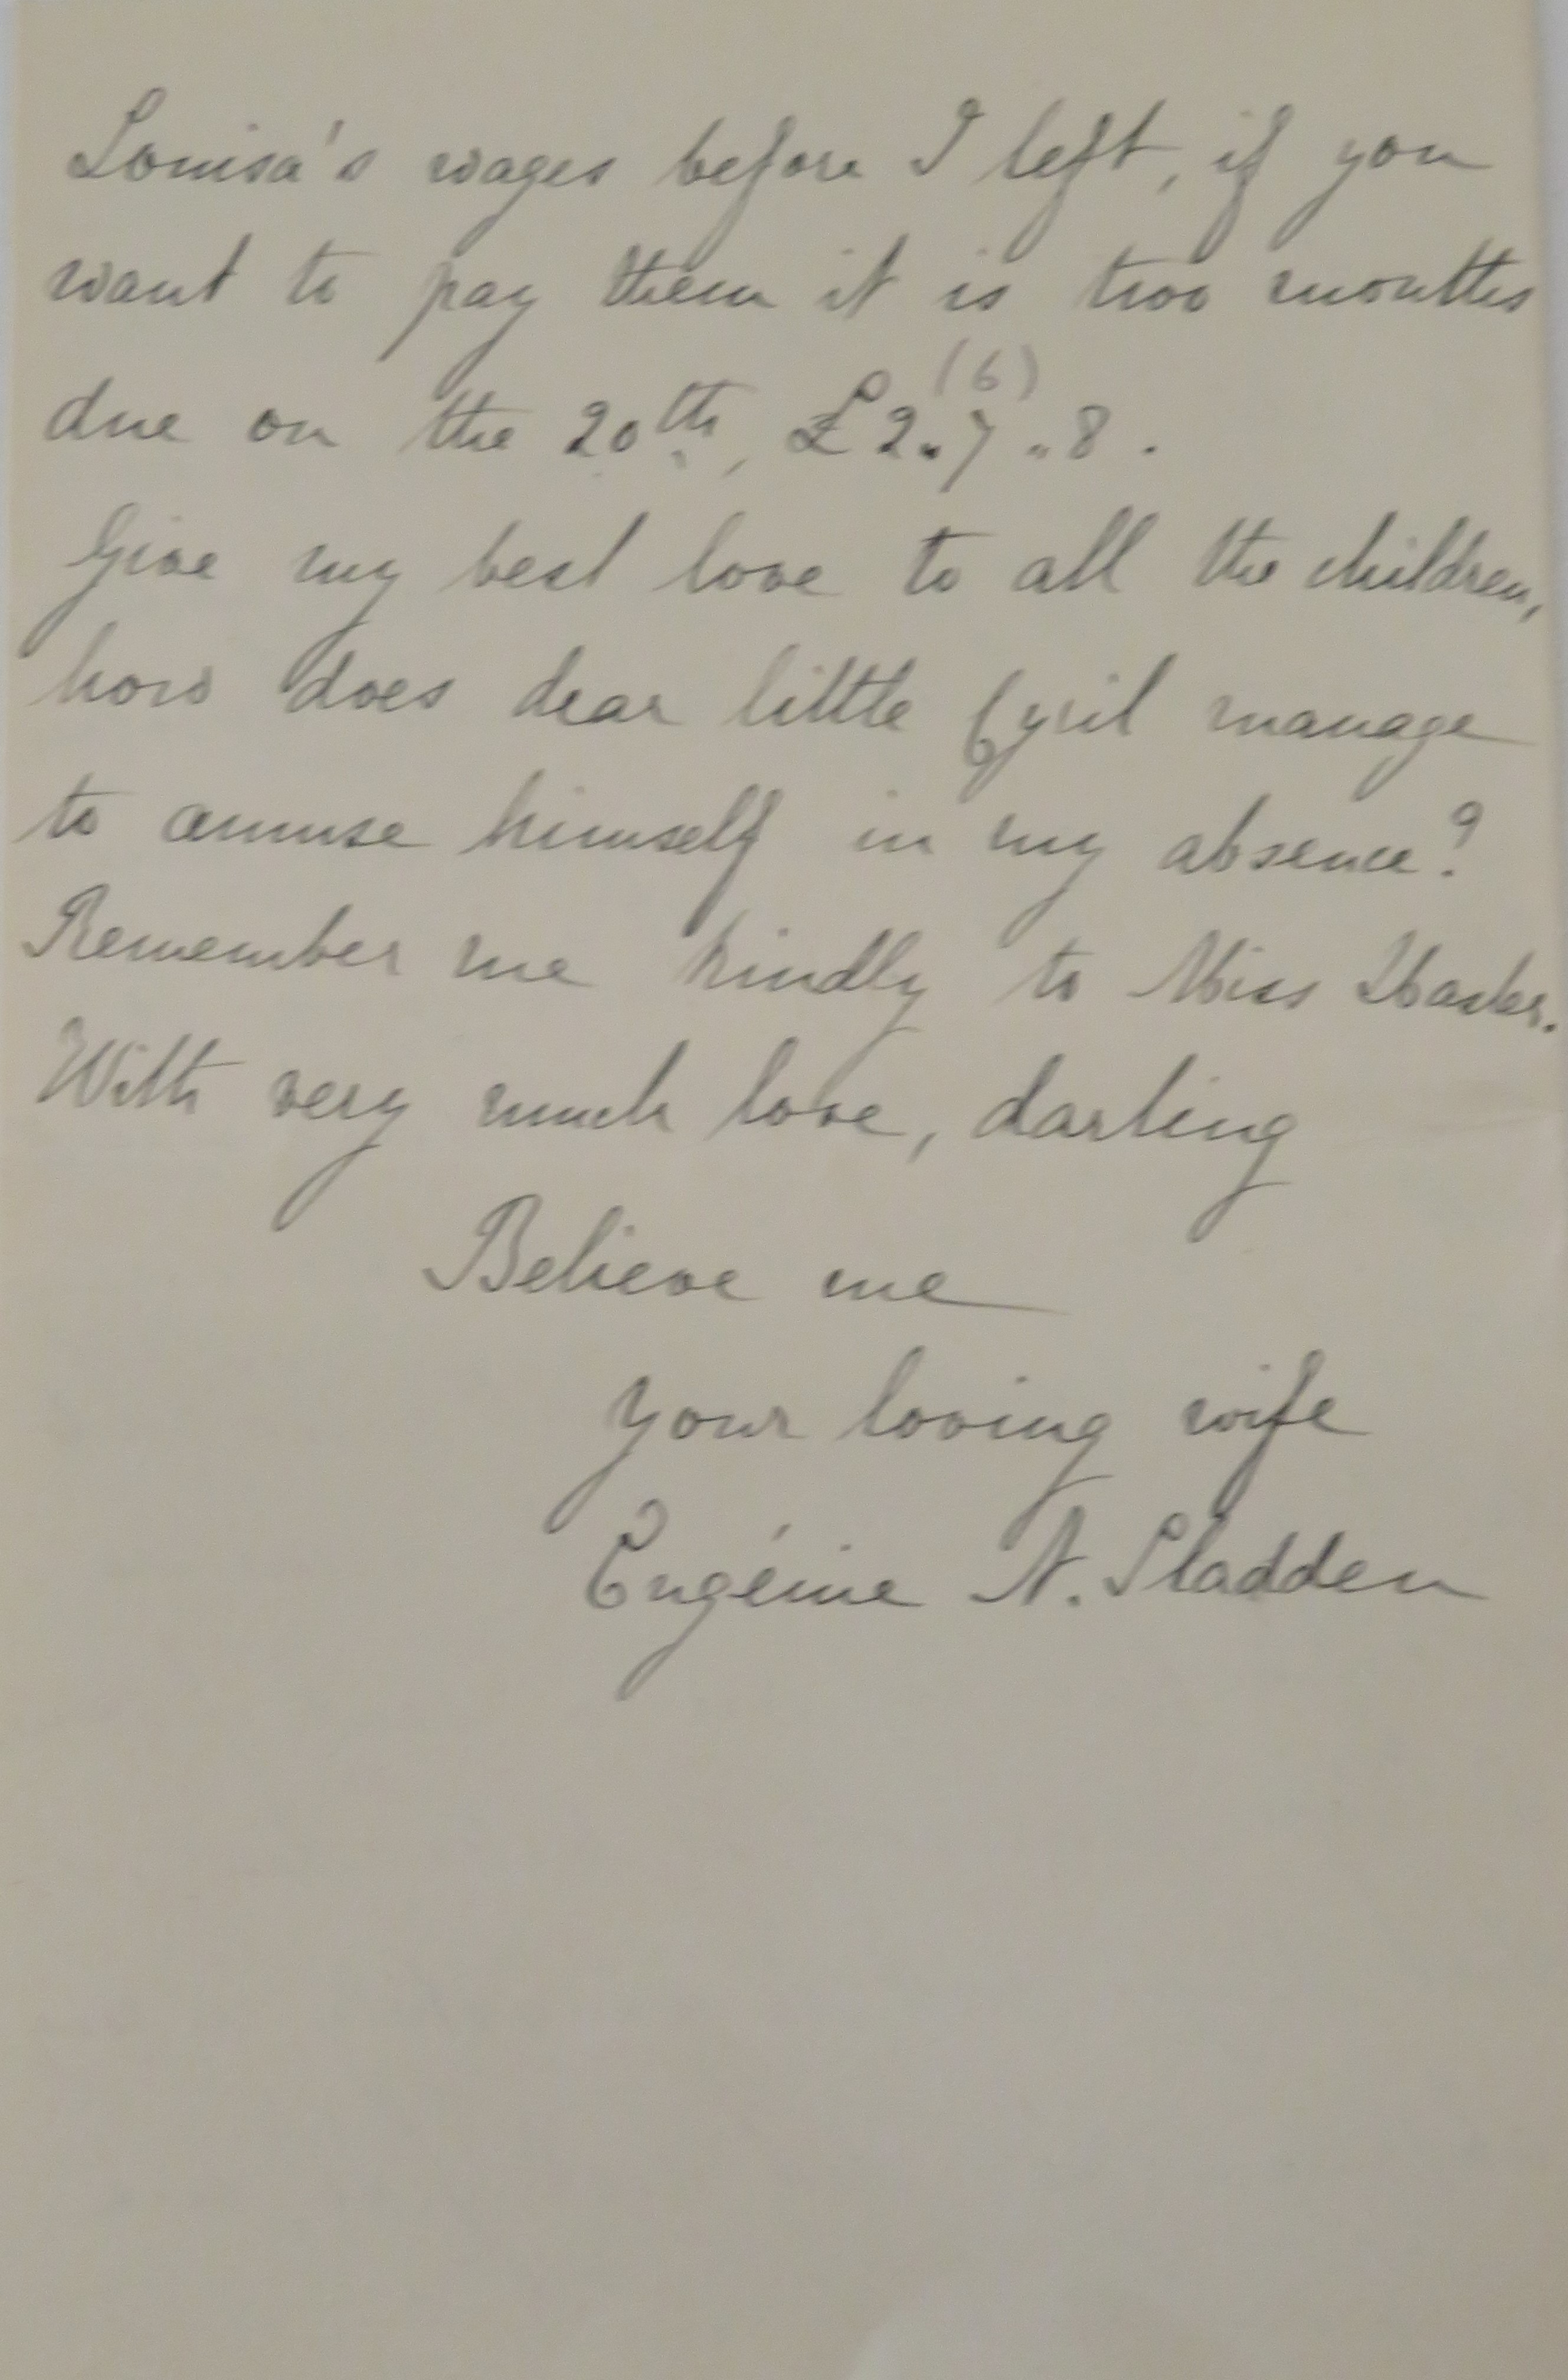 Louisa's wages before I left, if you
want to pay them it is two months
(6)
due on the 20th, £2.7.8.
Give my best love to all the children,
how does dear little Cyril manage
to amuse himself in my absence?
Remember me kindly to Miss
With very much love, darling
Believe me
your loving wife
Eugénie N. Sladden